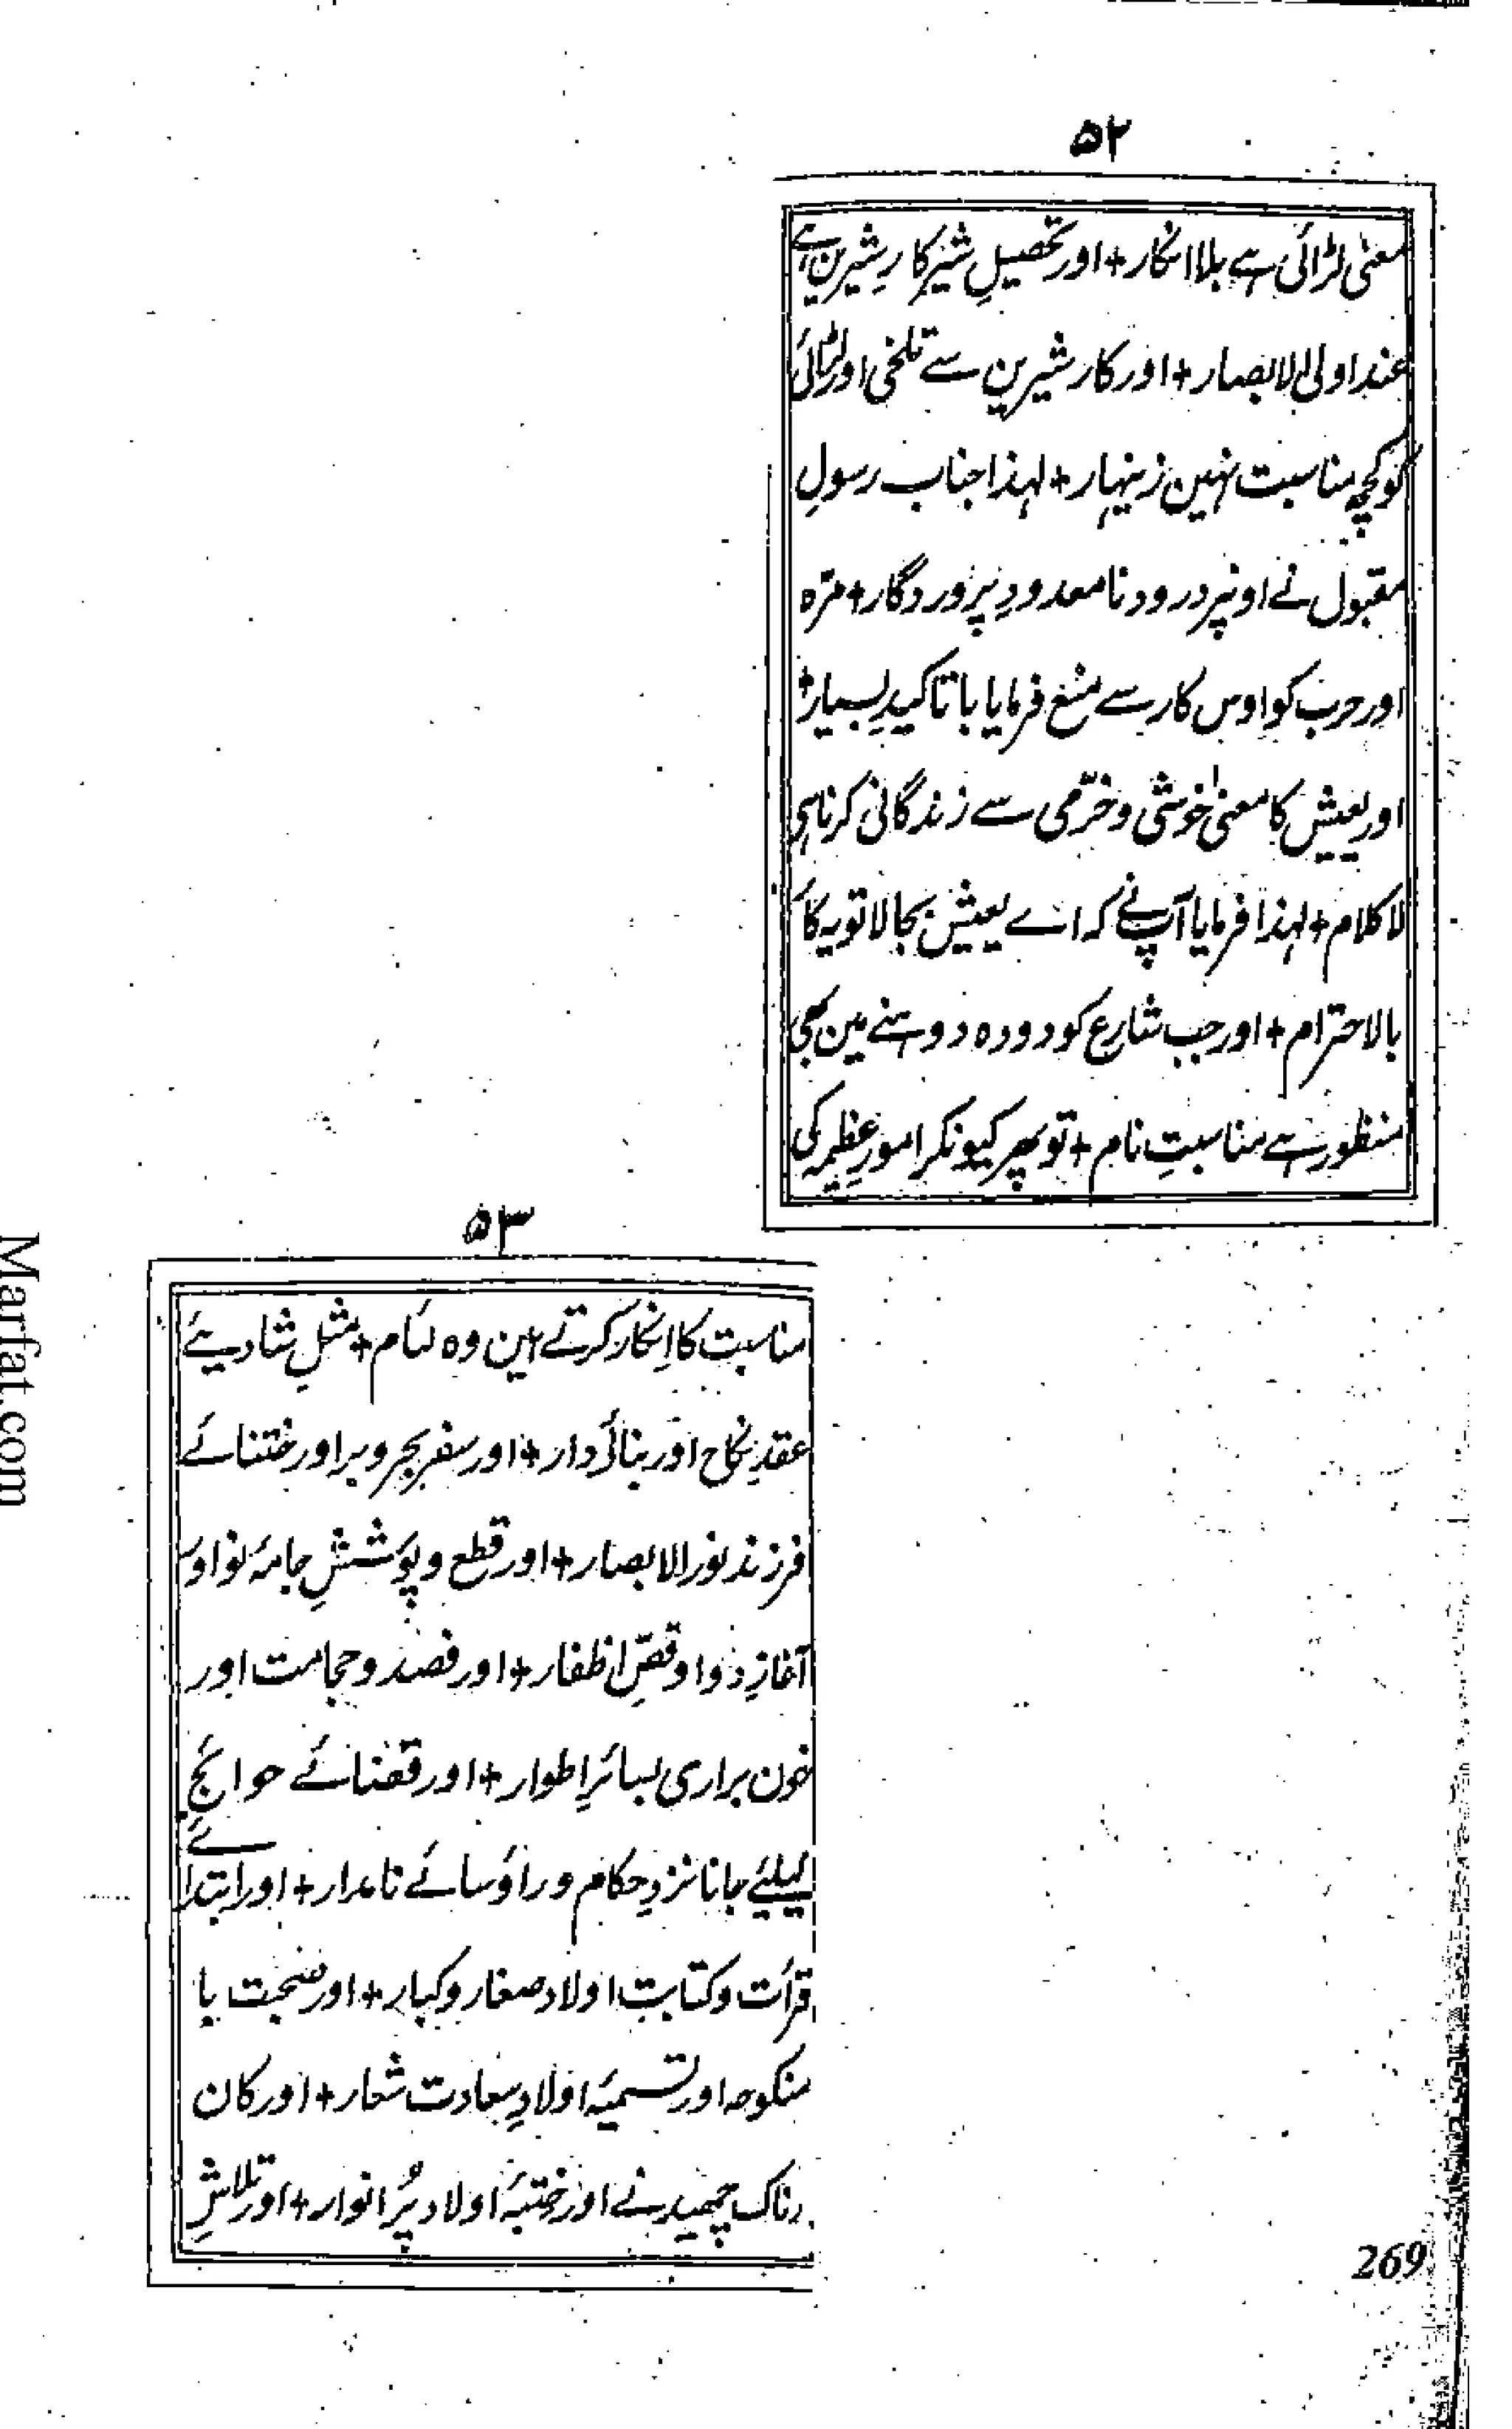 ۵۲
معنی لڑائی ہے بلا انکار + اور تحصیلِ شیر کارِ شیرین ہے
عند اولی الابصار + اور کار شیرین سے تلخی اور لڑائی
کو کچھ مناسبت نہین زینہار + لہذا جناب رسولِ
مقبول نے اونپر درود نامعدودِ پروردگار + مرّہ
اور حرب کو اوس کار سے منع فرمایا با تاکیدِ بسیار +
اور یعیش کا معنیٰ خوشی و خرّمی سے زندگانی کرنا ہی
لا کلام + لہذا فرمایا آپنے کہ اے یعیش بجا لا تو یہ کا
بالاحترام + اور جب شارع کو دودہ دوہنے مین بھی
منظور ہے مناسبتِ نام + تو پھر کیونکر امورِ عظیمہ کی
۵۳
مناسبت کا اِنکار کرتے ہین وہ لئام + مثلِ شادیئے
عقدِ نکاح اور بنائے دار + اور سفرِ بحر و بر اور ختنائے
فرزند نور الابصار + اور قطع و پوششِ جامۂ نو اور
آغازِ دوا و قصِّ اظفار + اور فصد و حجامت اور
خون براری بسائرِ اطوار + اور قضائے حوائجِ
کیلئے جانا نزدِ حکام و راؤسائے نامدار + اور ابتدائے
قرأت و کتابتِ اولاد صغار و کبار + اور صحبت با
منکوحہ اور تسمیۂ اولادِ سعادت شعار + اور کان
رناک چھیدنے اور ختبۂ اولاد پُر انوار + اور تلاشِ
269
Marfat.com